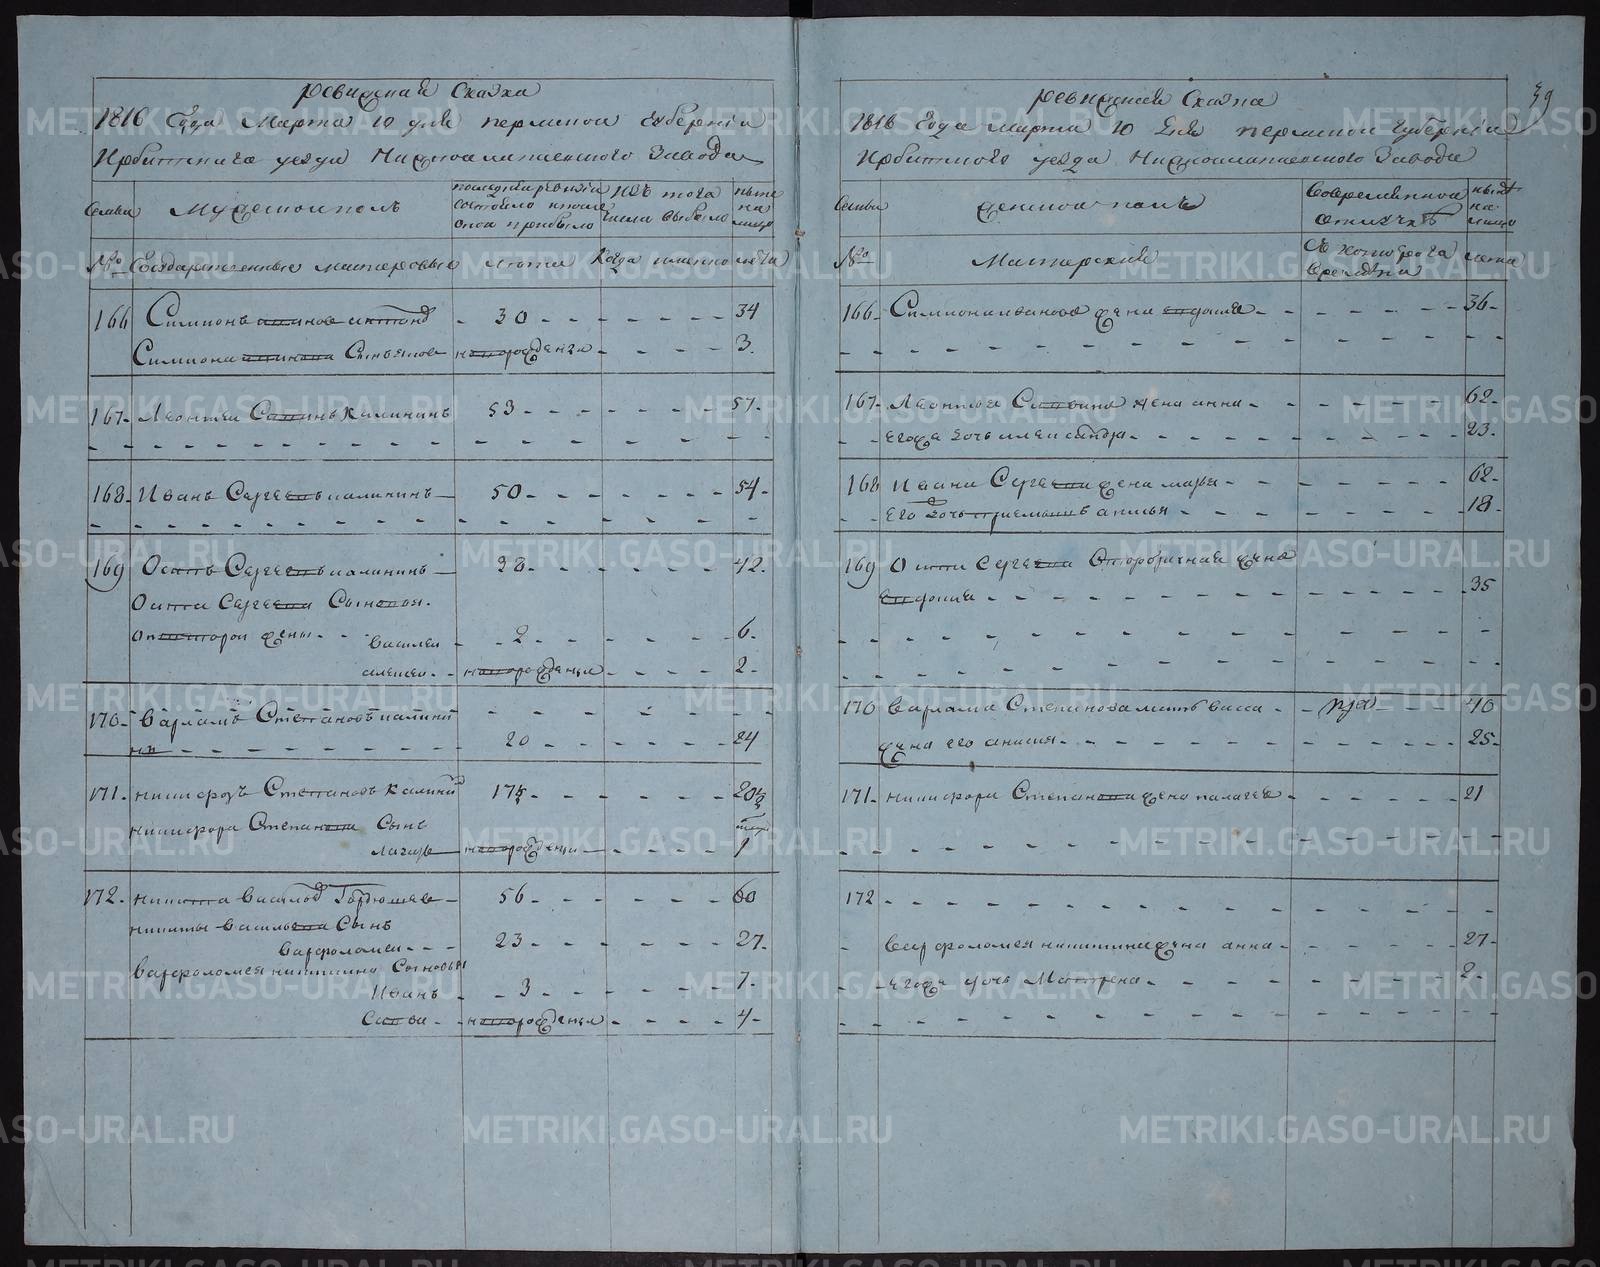 39
ревизская Сказка
1816 Года Марта 10 дня пермской Губернїи
Ирбитскаго уезда Нижноалапаевского Завода
Семьи
Мужескои полъ
последней ревизїи состояло и после оной прибыло
Изъ того числа выбыло
ныне на лицо
№о
Государственные мастеровые
лета
Когда имянно
лета
166
Симионъ
30
34
Симиона Сынъ
новорожденъ
3
167
Леонтеи Калининъ
53
57
168
Иванъ Сергеевъ калининъ
50
54
169
Осипъ Сергеевъ калининъ
42
Осипа Сергеева Сыновья
от второй жены
василеи
2
6
алексеи
новорожденъ
2
170
варламъ Степановъ калининъ
20
24
171
никифоръ Степановъ калинин
никифора Степанова Сынъ
лазарь
новорожденъ
1
172
никита василов
56
60
никиты васильева Сынъ
варфоломеи
23
27
варфоломея никитина Сыновья
Иванъ
3
7
Савва
новорожденъ
4
ревизская Сказка
1816 Года марта 10 дня пермской Губернїи
Ирбитского уезда Нижноалапаевского Завода
Семьи
женской полъ
во временной отлучкѣ
ныне на лицо
№о
Мастерские
Съ которого времени
лета
166
Симиона иванова жена евдокия
36
167
Леонтья Саввина жена анна
62
егоже дочь александра
23
168
Ивана Сергеева жена марья
62
Его дочь
18
169
Осипа Сергеева второбрачная жена
евдокия
35
170
варлама Степанова мать васса
40
жена его анисия
25
171
никифора Степанова жена палагея
21
172
варфоломея никитина жена анна
27
егоже дочь Матрена
2
METRIKI.GASO-URAL.RU